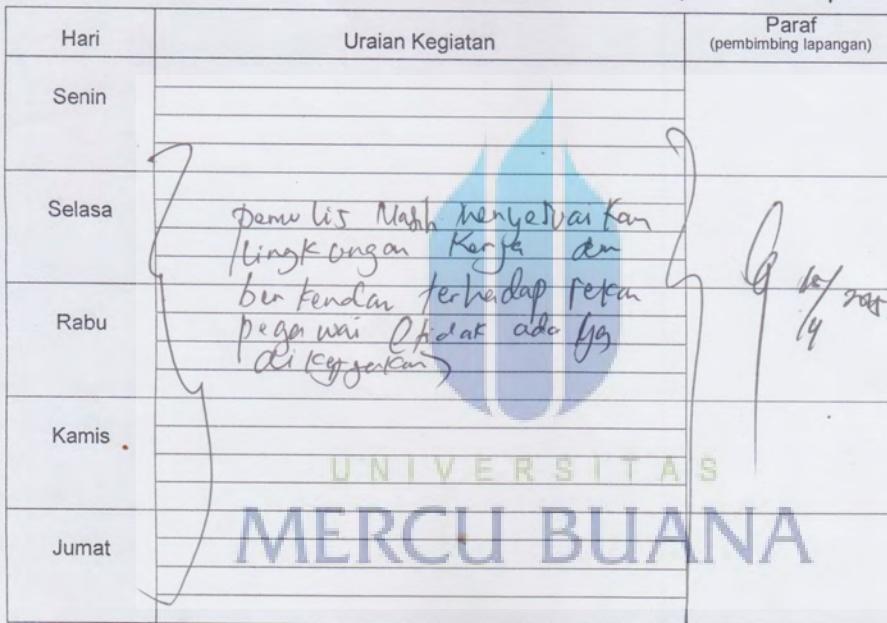 Hari
Uraian Kegiatan
Paraf
(pembimbing lapangan)
Senin
Selasa
penulis Masih menyesuaikan
lingkungan Kerja dan
terhadap rekan
Rabu
pegawai (tidak ada yg
di kerjakan)
Kamis
UNIVERSITAS
MERCU BUANA
Jumat